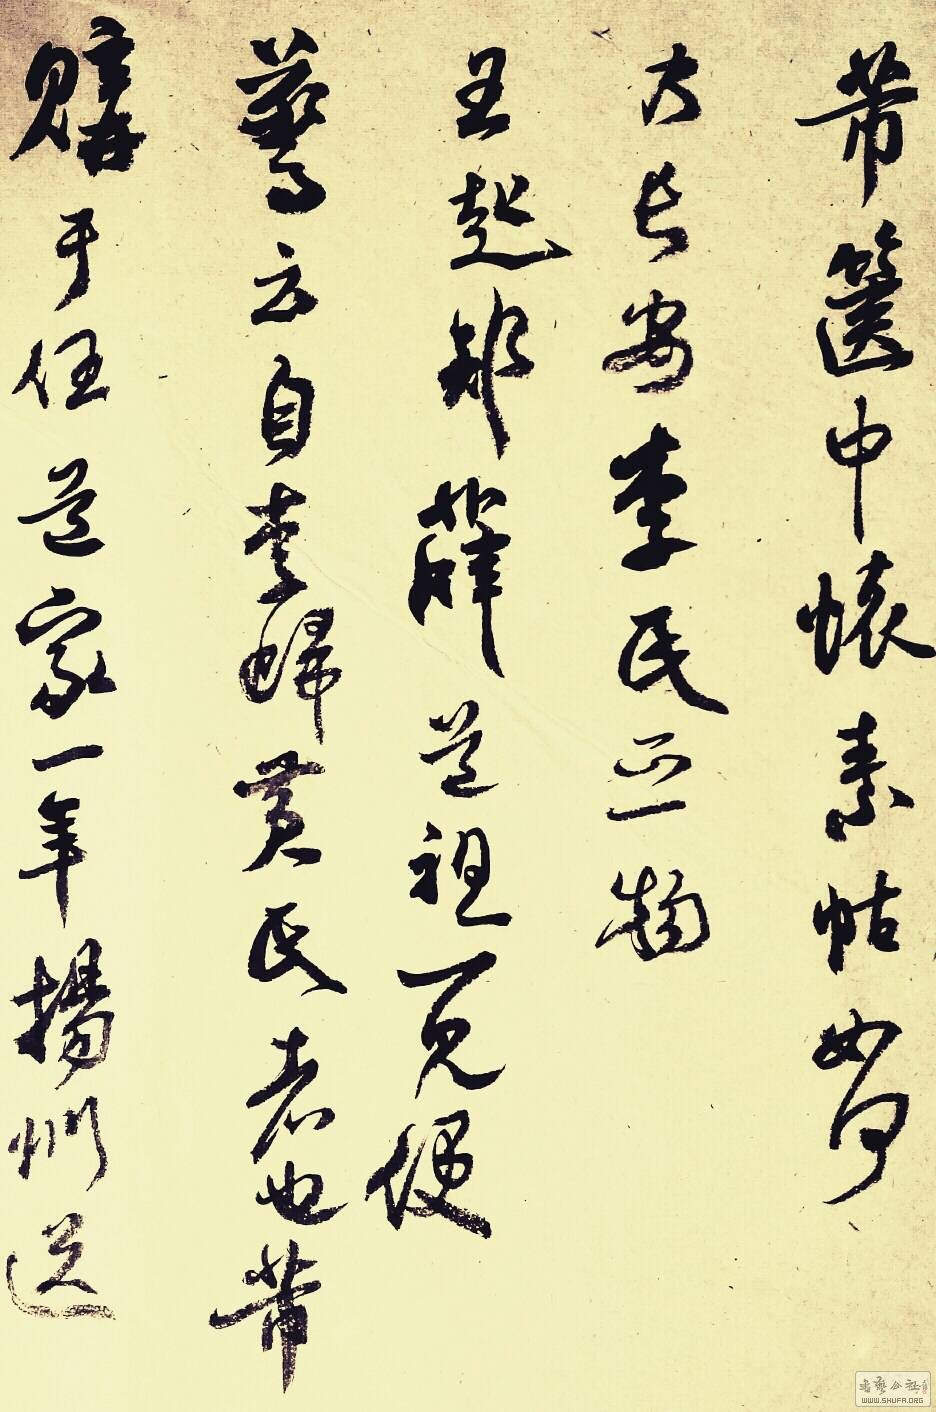 芾篋中懷素帖如何
乃長安李氏之物
王起部薛道祖一見便
驚云自李歸黃氏者也芾
購于任道家一年揚州送
書藝公社
WWW.SHUFA.ORG